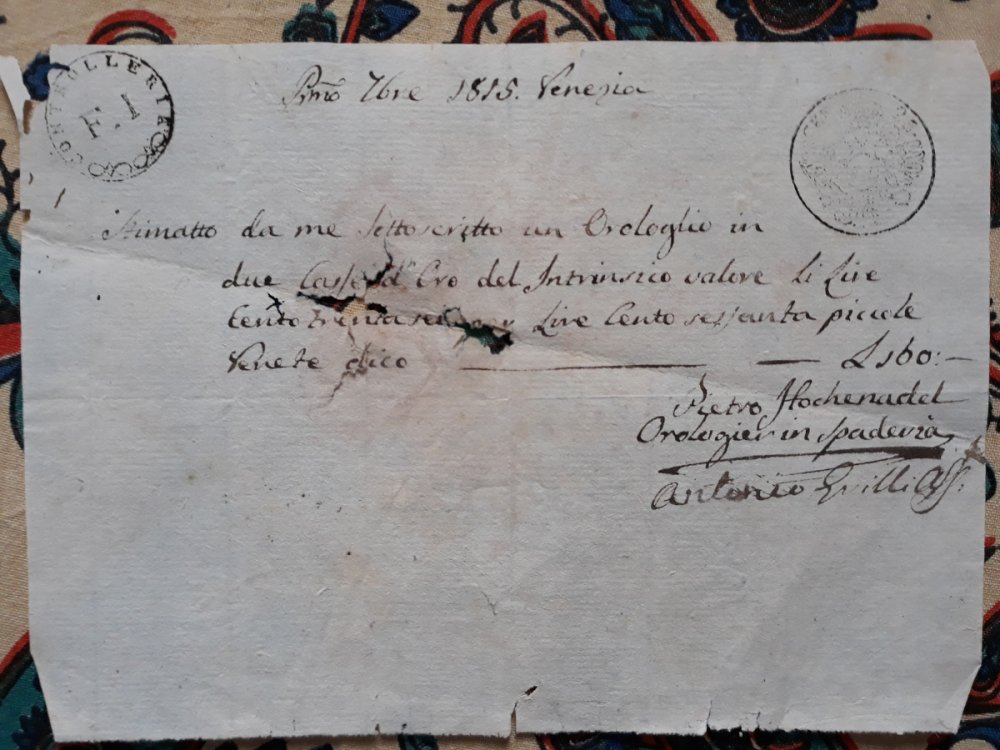 CONTROLLERIE
F. 1
Pmo 7bre 1815. Venezia
Stimatto da me sottoscritto un Orologlio in
due Casse d'Oro del Intrinsico valore di Lire
Cento trenta sei Lire Cento sessanta piccole
Venete dico — — L 160:—
Pietro Hochenadel
Orologier in Spaderia
Antonio